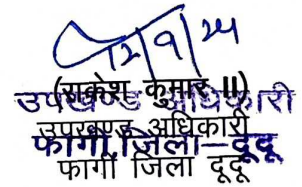 12/9/24
(राकेश कुमार II)
उपखण्ड अधिकारी
उपखण्ड अधिकारी
फागी, जिला-दूदू
फागी जिला दूदू